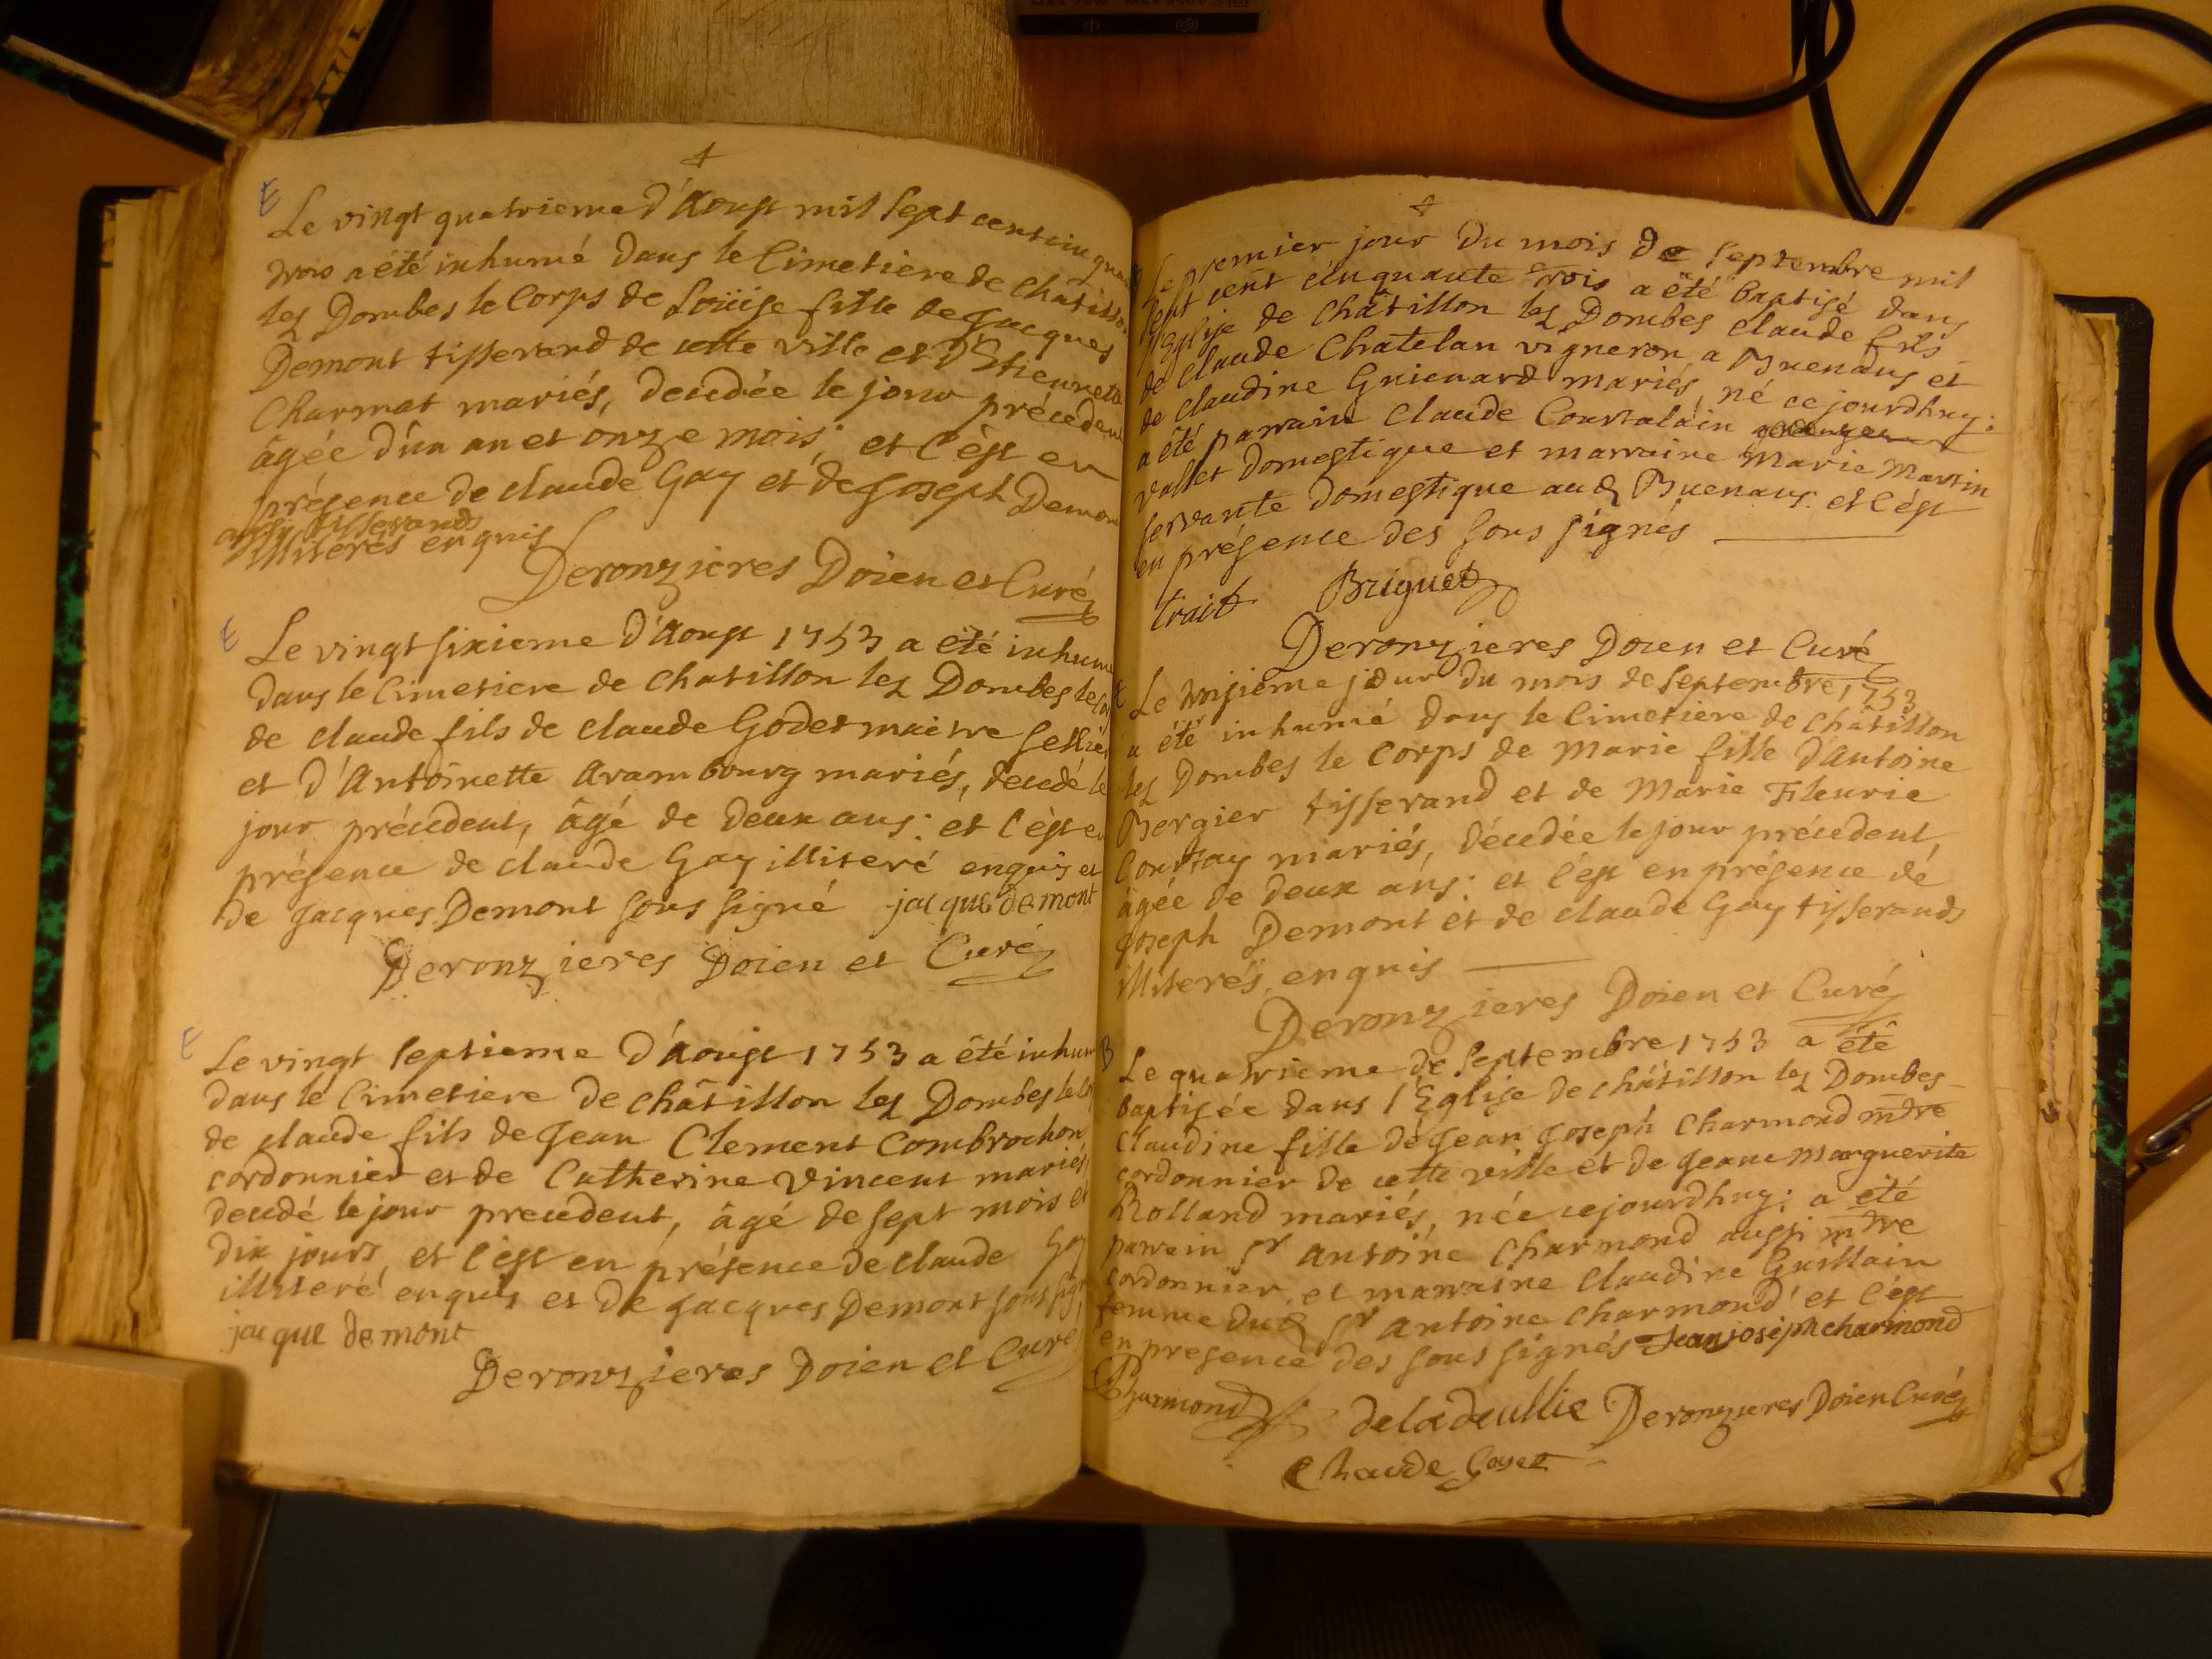 E
Le vingt quatrieme d'Aoust mil sept cent cinquan
trois a été inhumé dans le Cimetiere de châtillon
les Dombes le Corps de Loüise fille de Jacques
Demont tisserand de cette ville et d'Etiennette
Charmat mariés, decedée le jour précedent
âgée d'un an et onze mois; et c'est en
présence de claude Gay et de Joseph Demon
aussy tisserands
illiterés enquis
Deronzieres Doien et Curé
E
Le vingt sixieme d'Aoust 1753 a été inhum
dans le Cimetiere de chatillon les Dombes le Cor
de claude fils de claude Godet maitre sellier
et d'Antoinette Arambourg mariés, decedé le
jour précedent, âgé de deux ans: et c'est en
présence de claude Gay illiteré enquis et
de Jacques Demont sous signé jacque demont
Deronzieres Doien et Curé
E
Le vingt septieme d'Aoust 1753 a été inhum
dans le Cimetiere de châtillon les Dombes le Co
de claude fils de Jean Clement Combrochon
cordonnier et de Catherine Vincent mariés
decedé le jour precedent, âgé de sept mois et
dix jours, et c'est en présence de claude Gay
illiteré enquis et de Jacques Demont sous sign
jacque demont
Deronzieres Doien et Curé
Le premier jour du mois de Septembre mil
sept cent cinquante trois a été baptisé dans
l'Eglise de châtillon les Dombes claude fils
de claude Chatelan vigneron a Buenans et
de claudine Guienard mariés, né ce jourdhuy:
a été parrain Claude Courtalain
vallet domestique et marraine Marie Martin
servante domestique aud Buenans: et c'est
en présence des sous signés
trait Briguet
Deronzieres Doien et Curé
E
Le troisieme jour du mois de Septembre 1753
a été inhumé dans le Cimetiere de châtillon
les Dombes le Corps de Marie fille d'Antoine
Bergier tisserand et de Marie Fleurie
Courtay mariés, décedée le jour précedent,
âgée de deux ans: et c'est en présence de
Joseph Demont et de claude Gay tisserands
illiterés, enquis
Deronzieres Doien et Curé
B
Le quatrieme de Septembre 1753 a été
baptisée dans l'Eglise de châtillon les Dombes
Claudine fille de Jean Joseph Charmond mdre
cordonnier de cette ville et de Jeane Marguerite
Rolland mariés, née cejourdhuy; a été
parrain Sr Antoine Charmond aussi mdre
cordonnier, et marraine Claudine Guillain
femme dud Sr Antoine Charmond et c'est
en presence des sous signés Jean joseph charmond
Charmond deladeullie Deronzieres Doien Curé
Chaude Goyet